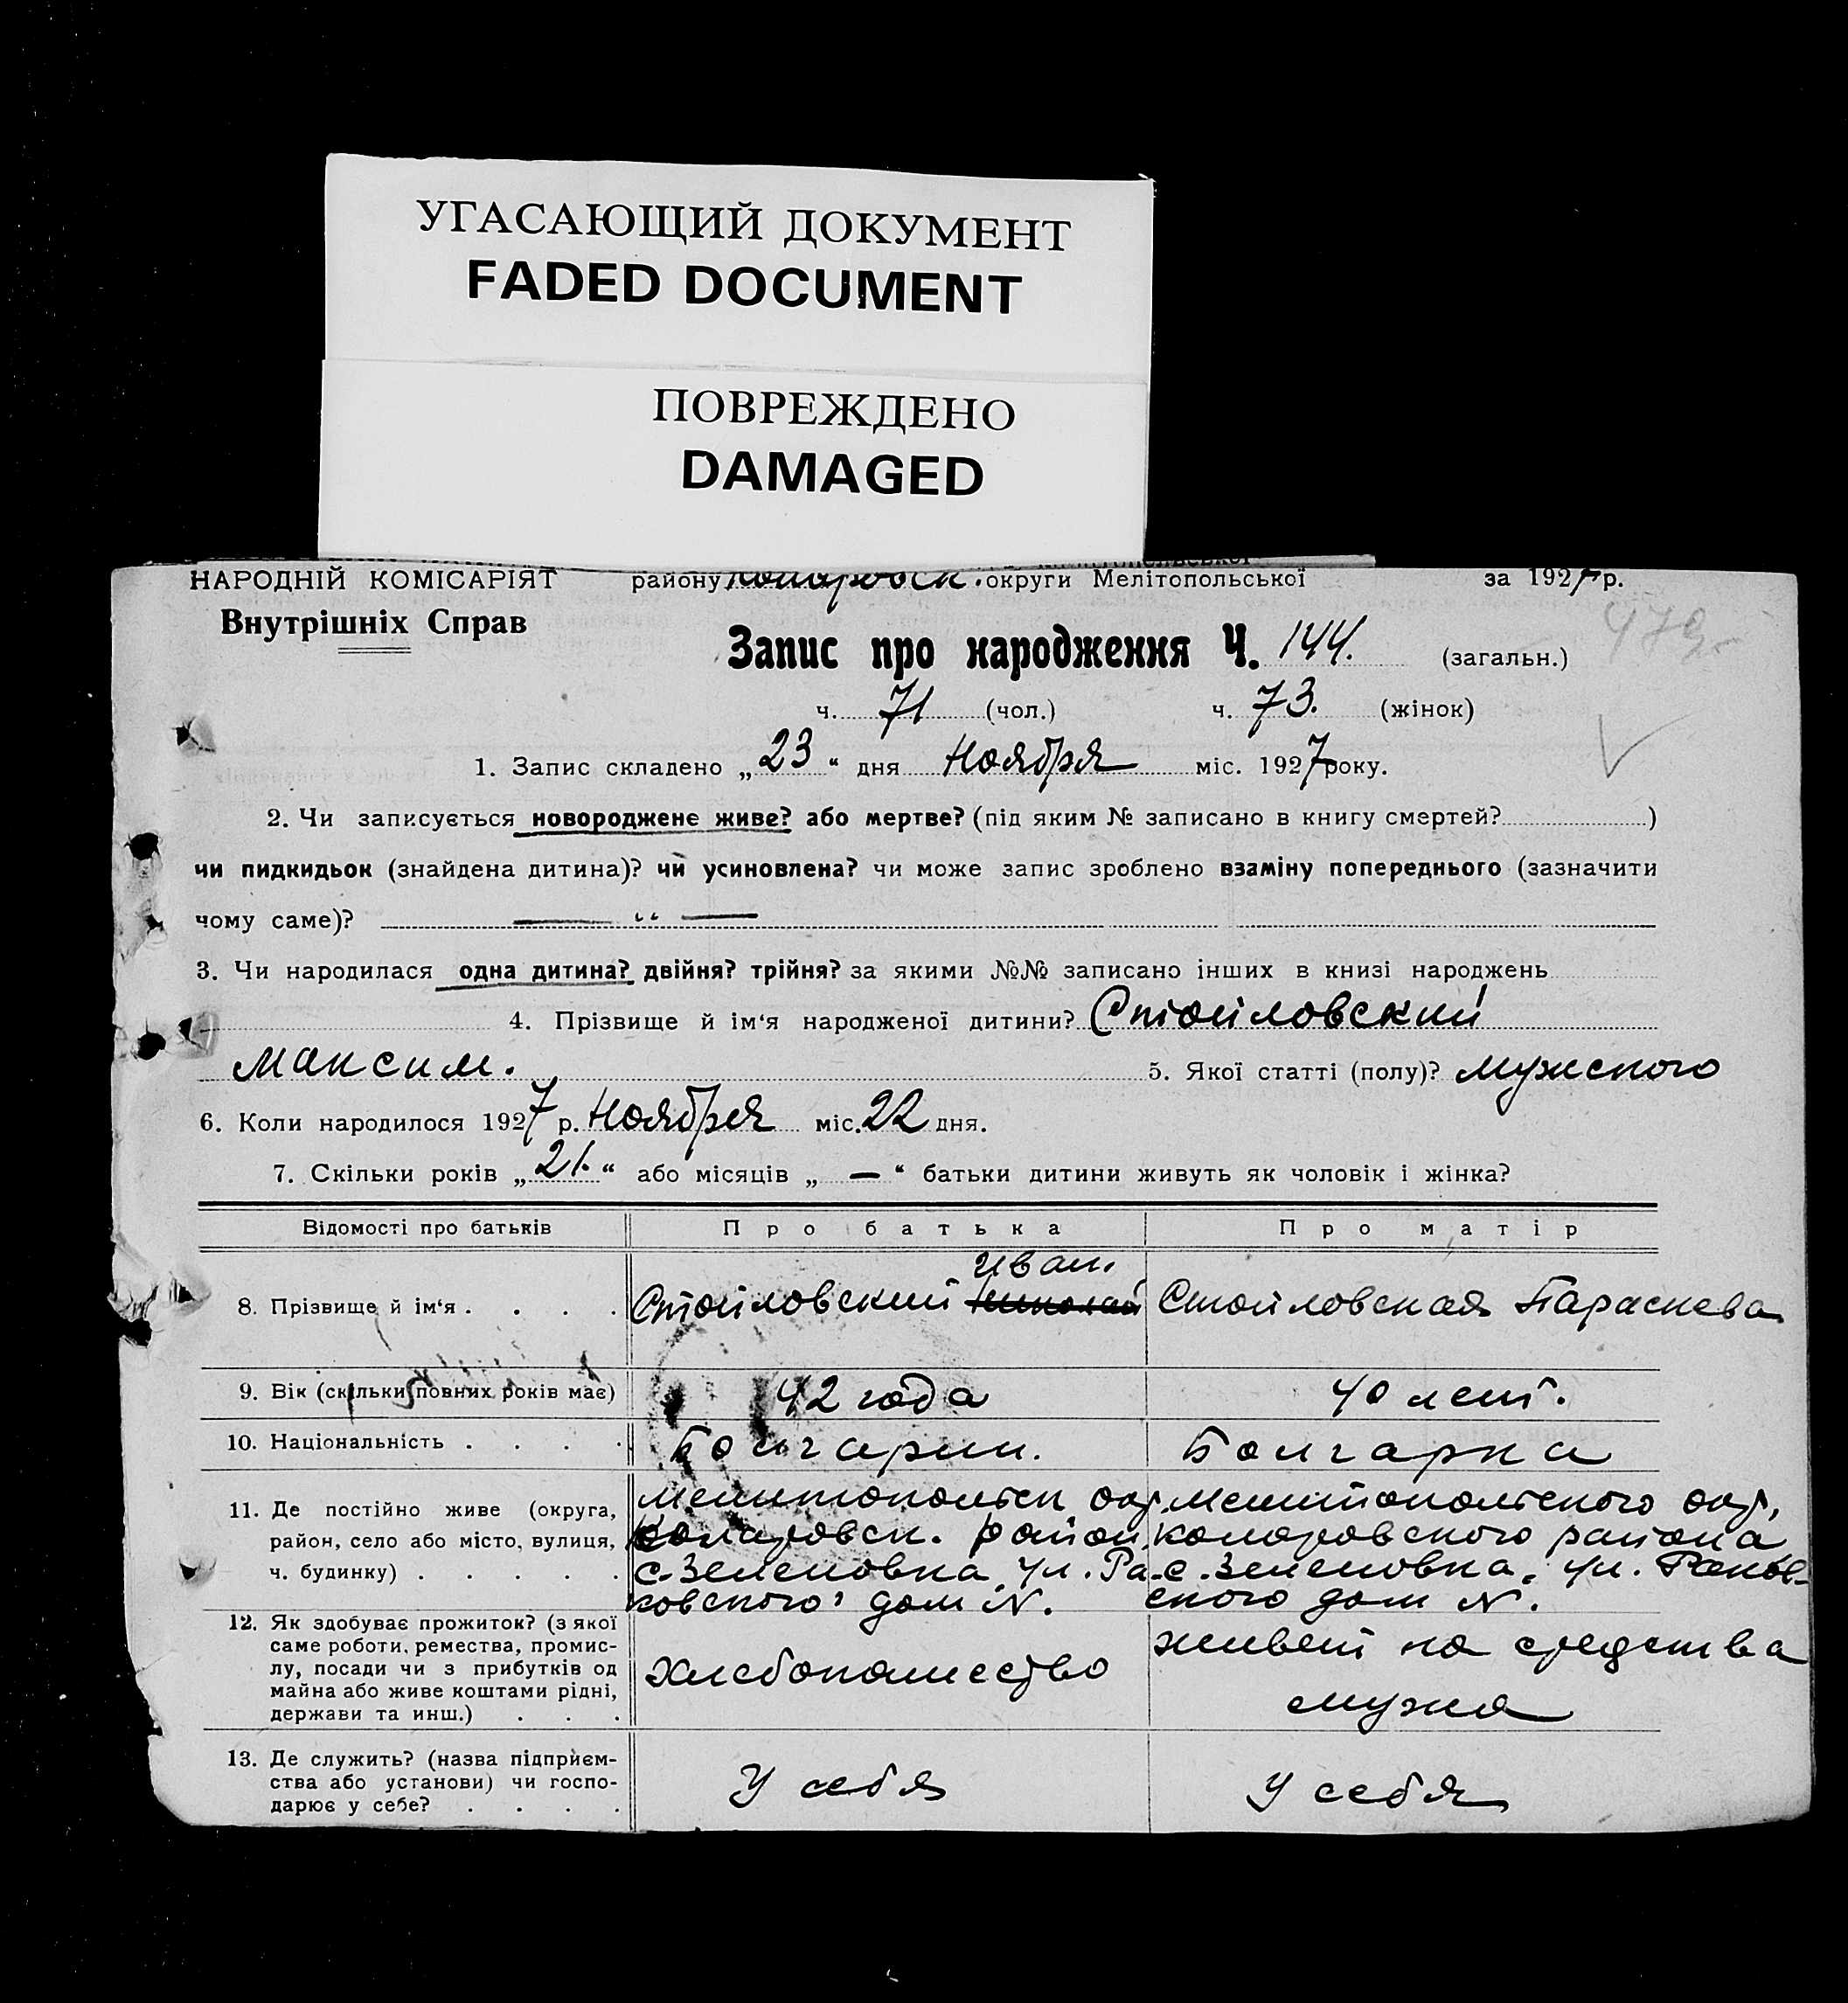 УГАСАЮЩИЙ ДОКУМЕНТ
FADED DOCUMENT
ПОВРЕЖДЕНО
DAMAGED
НАРОДНІЙ КОМІСАРІЯТ району округи Мелітопольської за 1927 р.
Внутрішніх Справ
479
Запис про народження Ч. 144. (загальн.)
ч. 71 (чол.) ч. 73. (жінок)
1. Запис складено „23“ дня Ноября міс. 1927 року.
2. Чи записується новороджене живе? або мертве? (під яким № записано в книгу смертей? )
чи пидкидьок (знайдена дитина)? чи усиновлена? чи може запис зроблено взаміну попереднього (зазначити
чому саме)? — “ —
3. Чи народилася одна дитина? двійня? трійня? за якими №№ записано інших в книзі народжень
4. Прізвище й ім‘я народженої дитини? Стойловский
Максим. 5. Якої статті (полу)? мужского
6. Коли народилося 1927 р. Ноября міс. 22 дня.
7. Скільки років „21.“ або місяців „—“ батьки дитини живуть як чоловік і жінка?
Відомості про батьків Про батька Про матір
Иван.
8. Прізвище й ім‘я . . . . Стойловский Николай Стойловская Параскева
9. Вік (скільки повних років має) 42 года 40 лет.
10. Національність . . . . Болгарин. Болгарка
11. Де постійно живе (округа, Мелитопольск окр. Мелитопольского окр.
район, село або місто, вулиця, Коларовск. район, Коларовского района
ч. будинку) . . . . . с. Зеленовка, ул. Ра- с. Зеленовка, ул. Раков-
ковского, дом N. ского дом N.
12. Як здобуває прожиток? (з якої
саме роботи, ремества, промис- живет на средства
лу, посади чи з прибутків од хлебопашество
майна або живе коштами рідні, мужа
держави та инш.) . . .
13. Де служить? (назва підприєм-
ства або установи) чи госпо- У себя У себя
дарює у себе? . . . .